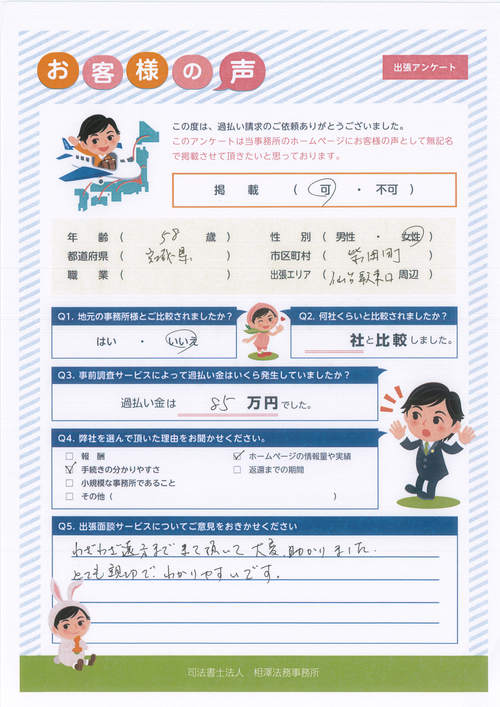 お客様の声
出張アンケート
この度は、過払い請求のご依頼ありがとうございました。
このアンケートは当事務所のホームページにお客様の声として無記名
で掲載させて頂きたいと思っております。
掲載 ( 可 ・ 不可 )
年齢 ( 58 歳 ) 性別 ( 男性 ・ 女性 )
都道府県 ( 宮城県 ) 市区町村 ( 柴田町 )
職業 ( ) 出張エリア ( 仙台駅東口 周辺 )
Q1. 地元の事務所様とご比較されましたか?
はい ・ いいえ
Q2. 何社くらいと比較されましたか?
社と比較しました。
Q3. 事前調査サービスによって過払い金はいくら発生していましたか?
過払い金は 85 万円でした。
Q4. 弊社を選んで頂いた理由をお聞かせください。
□ 報酬 ☑ ホームページの情報量や実績
☑ 手続きの分かりやすさ □ 返還までの期間
□ 小規模な事務所であること
□ その他 ( )
Q5. 出張面談サービスについてご意見をおきかせください
わざわざ遠方まで来て頂いて大変助かりました.
とても親切で.わかりやすいです.
司法書士法人 相澤法務事務所